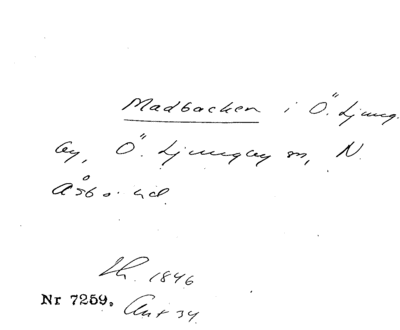 Madbacken i Ö. Ljung.
by, Ö. Ljungby sn, N.
Åsbo hd.
Lh. 1846
Nr 7259. Ant 34.